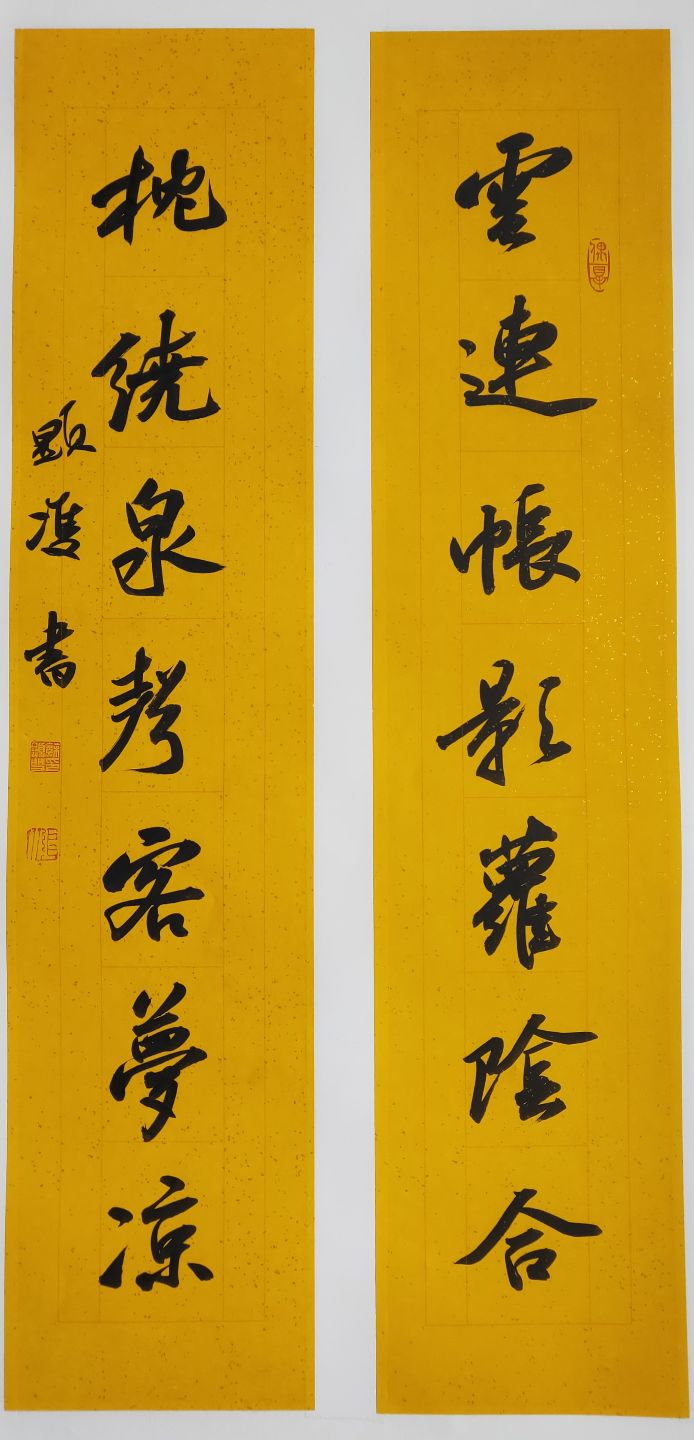 雲連帳影蘿陰合
枕繞泉聲客夢凉
顯濬書